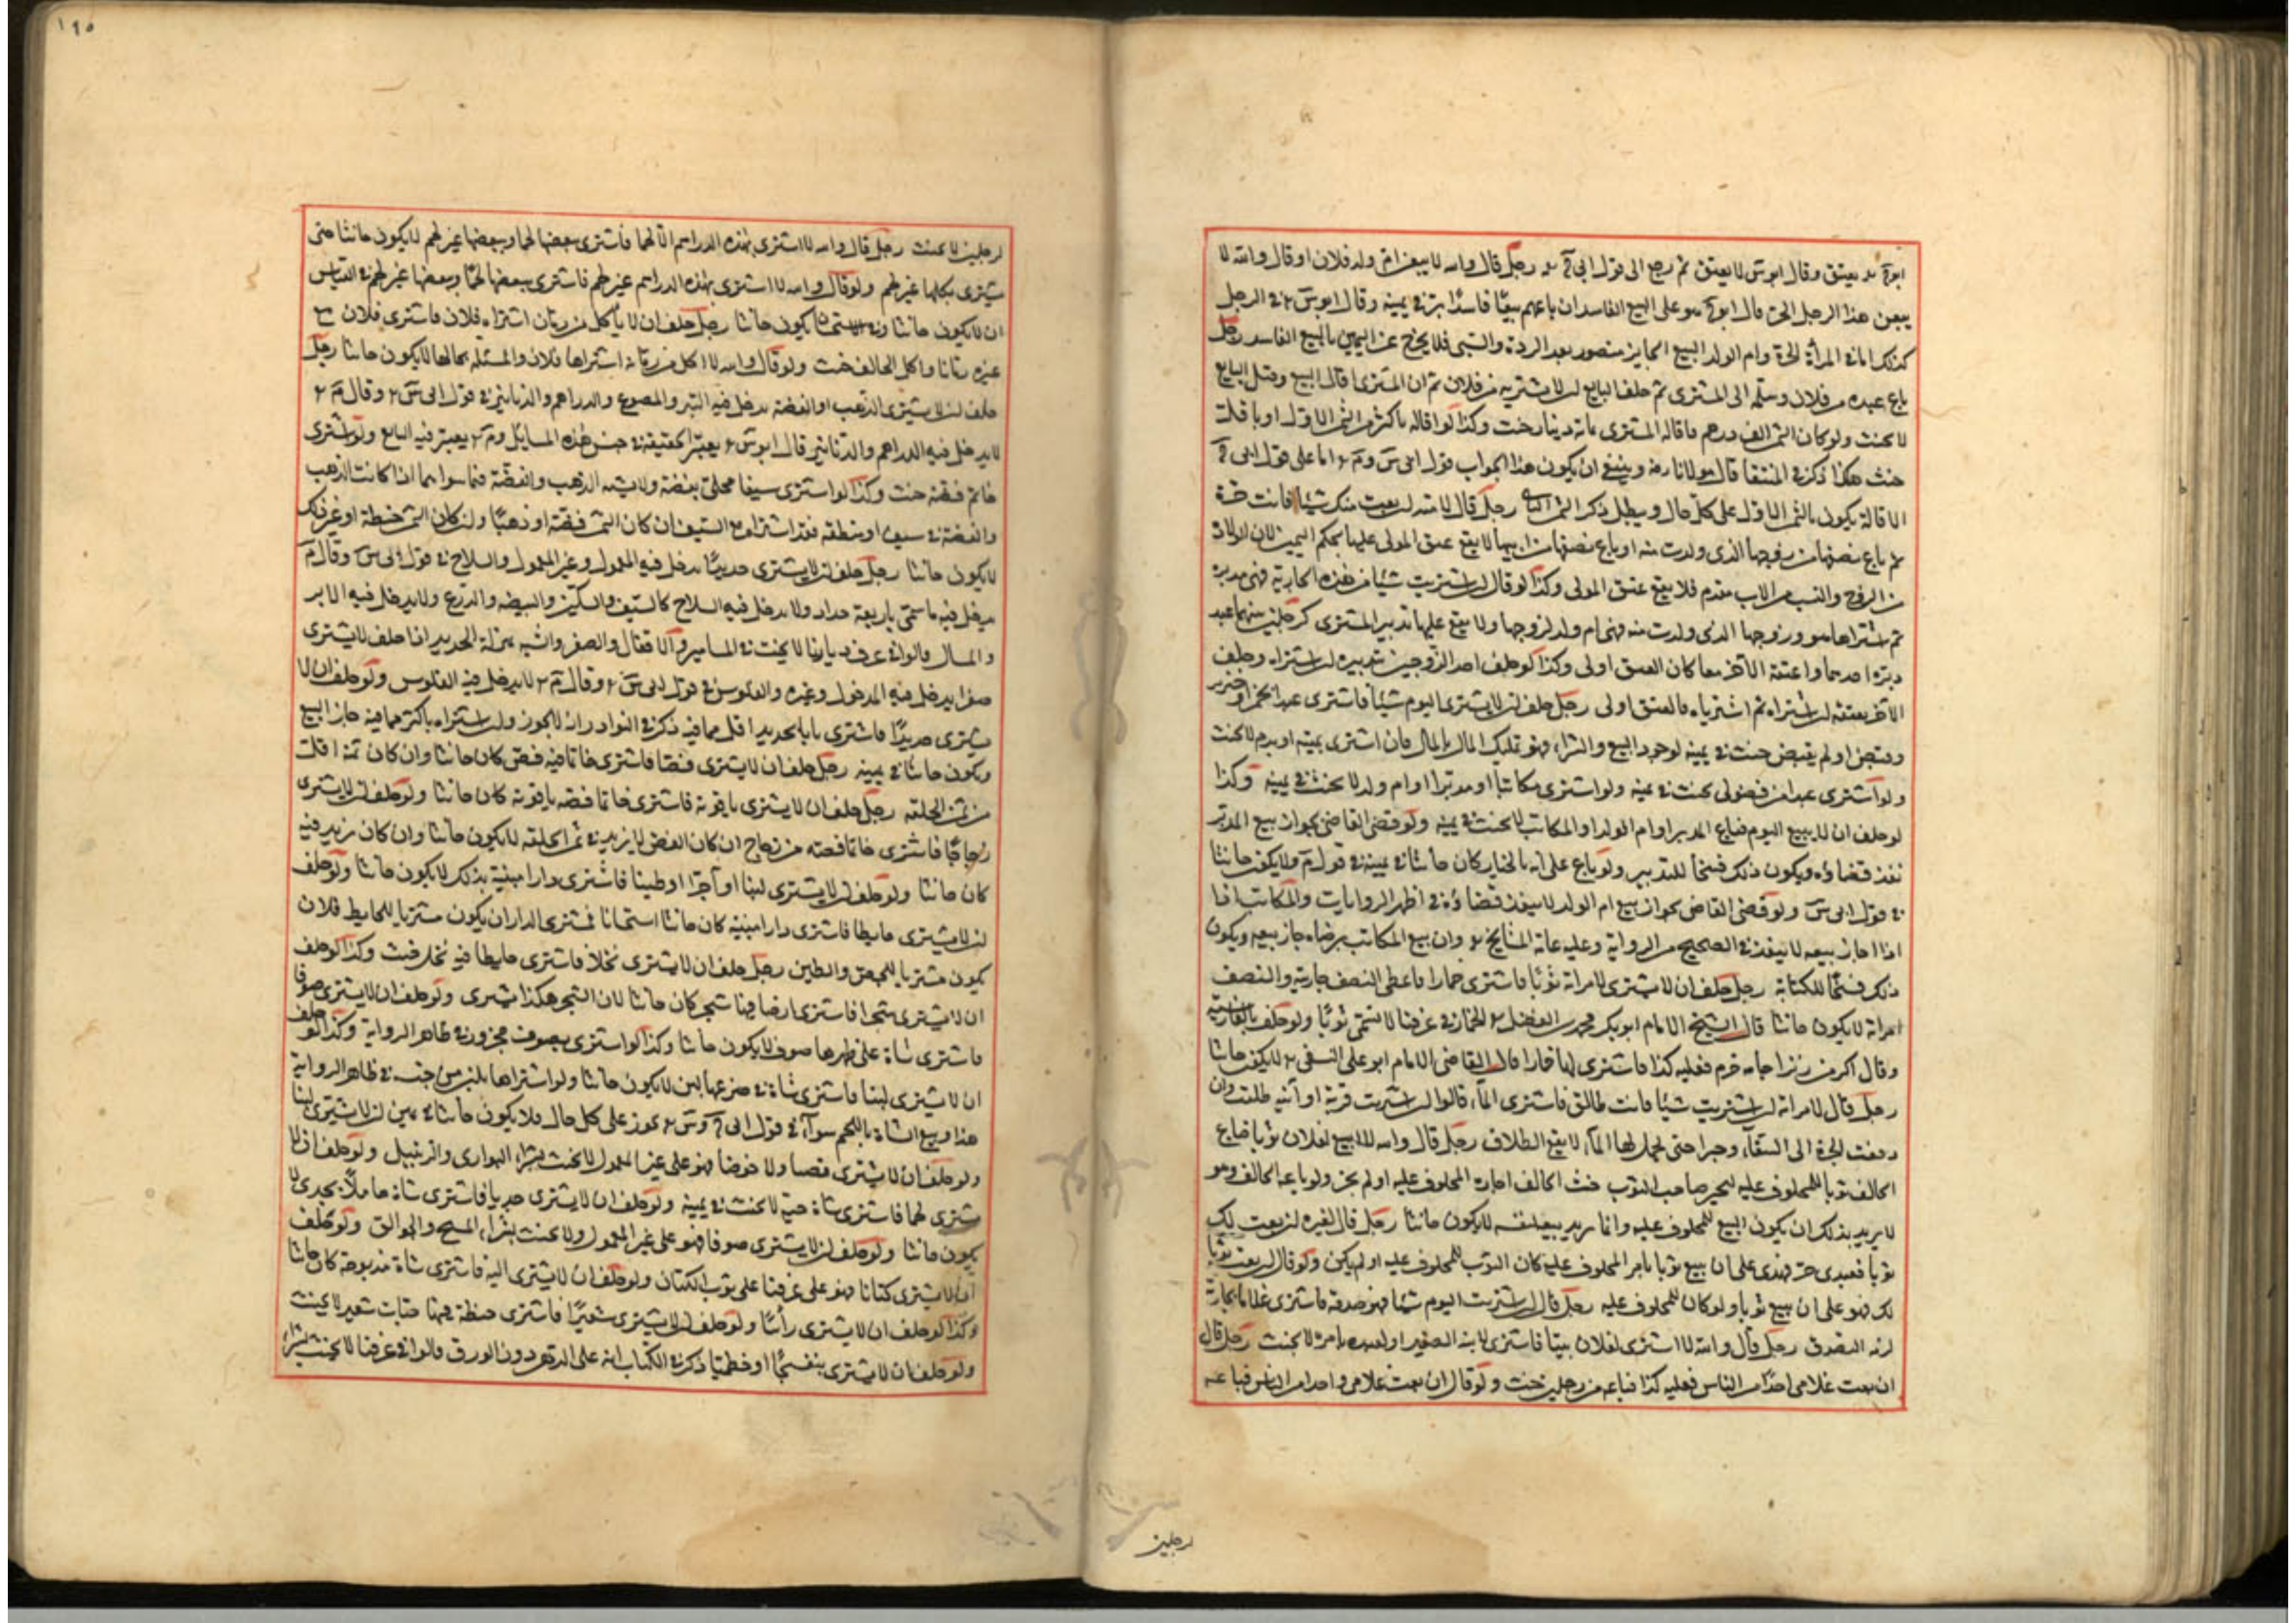 ابو ح يعتق وقال ابو س لا يعتق ثم رجع الى قول ابي ح رجل قال والله لا يبيعن ام ولد فلان او قال والله لا
يبيعن هذا الرجل الحر قال ابو ح هو على البيع الفاسد ان باعهم بيعا فاسدا بر في يمينه وقال ابو س في الرجل
كذلك اما في المراة الحرة وام الولد البيع الجايز متصور بعد الردة والسبي فلا يخرج عن اليمين بالبيع الفاسد رجل
باع عبده من فلان وسلمه الى المشتري ثم حلف البايع ان لا يشتريه من فلان ثم ان المشتري اقال البيع وقبل البايع
لا يحنث ولو كان الثمن الف درهم فاقاله المشتري بمائة دينار حنث وكذا لو اقاله باكثر من الثمن الاول او باقل
حنث هكذا ذكر في المنتقا قال مولانا رضه وينبغي ان يكون هذا الجواب قول ابي س وم اما على قول ابي ح
الاقالة يكون بالثمن الاول على كل حال ويبطل ذكر الثمن الثاني رجل قال لامته ان بعت منك شيئا فانت حرة
ثم باع نصفها من زوجها الذي ولدت منه او باع نصفها من ابيها لا يقع عتق المولى عليها بحكم اليمين لان الولادة
من الزوج والنسب من الاب مقدم فلا يقع عتق المولى وكذا لو قال ان اشتريت شيئا من هذه الجارية فهي مدبرة
ثم اشتراها هو وزوجها الذي ولدت منه فهي ام ولد لزوجها ولا يقع عليها تدبير المشتري كرجلين بينهما عبد
دبره احدهما واعتقه الاخر معا كان العتق اولى وكذا لو حلف احد الزوجين بتدبيره ان اشتراه وحلف
الاخر بعتقه ان اشتراه ثم اشترياه فالعتق اولى رجل حلف ان لا يشتري اليوم شيئا فاشترى عبدا بخمر او خنزير
وقبض او لم يقبض حنث في يمينه لوجود البيع والشراء وهو تمليك المال بالمال فان اشترى بميتة او بدم لا يحنث
ولو اشترى عبدا من فضولي يحنث في يمينه ولو اشترى مكاتبا او مدبرا او ام ولد لا يحنث في يمينه وكذا
لو حلف ان لا يبيع اليوم فباع المدبر او ام الولد او المكاتب لا يحنث في يمينه ولو قضى القاضي بجواز بيع المدبر
نفذ قضاؤه ويكون ذلك فسخا للتدبير ولو باع على انه بالخيار كان حانثا في يمينه في قول م ولا يكون حانثا
في قول ابي س ولو قضى القاضي بجواز بيع ام الولد لا ينفذ قضاؤه في اظهر الروايات والمكاتب اذا
اذا اجاز بيعه لا ينفذ في الصحيح من الرواية وعليه عامة المشايخ وان بيع المكاتب برضاه جاز بيعه ويكون
ذلك فسخا للكتابة رجل حلف ان لا يشتري لامراته ثوبا فاشترى خمارا فاعطى النصف جاريته والنصف
امراته لا يكون حانثا قال الشيخ الامام ابو بكر محمد بن الفضل الخمار في عرفنا لا تسمى ثوبا ولو حلف بالفارسية
وقال اكر من زنرا جامه خرم فعليه كذا فاشترى لها خمارا قال القاضي الامام ابو علي النسفي لا يكون حانثا
رجل قال لامراته ان اشتريت شيئا فانت طالق فاشترى الماء قالوا ان اشترت قربة او آنية طلقت وان
دفعت الجرة الى السقاء وجرا حتى يحمل لها الماء لا يقع الطلاق رجل قال والله لا ابيع لفلان ثوبا فباع
الحالف ثوبا للمحلوف عليه ليجيز صاحب الثوب حنث الحالف اجازه المحلوف عليه او لم يجز ولو باعه الحالف وهو
لا يريد بذلك ان يكون البيع للمحلوف عليه وانما يريد بيعه لنفسه لا يكون حانثا رجل قال لغيره ان بعت لك
ثوبا فعبدي حر فهذي على ان يبيع ثوبا بامر المحلوف عليه كان الثوب للمحلوف عليه او لم يكن ولو قال ان بعت ثوبا
لك فهو على ان يبيع ثوبا ولو كان للمحلوف عليه رجل قال ان اشتريت اليوم شيئا فهو صدقة فاشترى غلاما بجارية
لزمه التصدق رجل قال والله لا اشتري لفلان بيتا فاشترى لابنه الصغير او لعبده بامره لا يحنث رجل قال
ان بعت غلامي احدا من الناس فعليه كذا فباعه من رجلين حنث ولو قال ان بعت غلامي واحدا من الناس فباعه
رجلين
١٩٥
لرجلين لا يحنث رجل قال والله لا اشتري بهذه الدراهم الا لحما فاشترى ببعضها لحما وببعضها غير لحم لا يكون حانثا حتى
يشتري بكلها غير لحم ولو قال والله لا اشتري بهذه الدراهم غير لحم فاشترى ببعضها لحما وببعضها غير لحم في القياس
ان لا يكون حانثا وفي الاستحسان يكون حانثا رجل حلف ان لا ياكل من رمان اشتراه فلان فاشترى فلان مع
غيره رمانا واكل الحالف حنث ولو قال والله لا اكل من رمانة اشتراها فلان والمسئلة بحالها لا يكون حانثا رجل
حلف ان لا يشتري الذهب او الفضة يدخل فيه التبر والمصوغ والدراهم والدنانير في قول ابي س وقال م
لا يدخل فيه الدراهم والدنانير قال ابو س يعتبر الحقيقة في جنس هذه المسايل وم يعتبر فيه البايع ولو اشترى
خاتم فضة حنث وكذا لو اشترى سيفا محلى بفضة ولا يشبه الذهب والفضة فيما سواهما اذا كانت الذهب
والفضة في سيف او منطقة فقد اشتراه مع السيف ان كان الثمن فضة او ذهبا وان كان الثمن حنطة او غير ذلك
لا يكون حانثا رجل حلف ان لا يشتري حديدا يدخل فيه المعمول وغير المعمول والسلاح في قول ابي س وقال م
يدخل فيه ما سمي بايعه حداد ولا يدخل فيه السلاح كالسيف والسكين والبيضة والدرع ولا يدخل فيه الابر
والمسال قالوا في عرف ديارنا لا يحنث في المسامير والاقفال والصفر والشبه بمنزلة الحديد اذا حلف لا يشتري
صفرا يدخل فيه المعمول وغيره والفلوس في قول ابي س وقال م لا يدخل فيه الفلوس ولو حلف ان لا
يشتري حديدا فاشترى بابا بحديد اقل مما فيه ذكر في النوادر ان لا يجوز وان اشتراه باكثر مما فيه جاز البيع
ويكون حانثا في يمينه رجل حلف ان لا يشتري فصا فاشترى خاتما فيه فص كان حانثا وان كان ثمنه اقل
من ثمن الحلقة رجل حلف ان لا يشتري ياقوتة فاشترى خاتما فصه ياقوتة كان حانثا ولو حلف ان لا يشتري
زجاجا فاشترى خاتما فصه من زجاج ان كان الفص لا يزيد في ثمن الحلقة لا يكون حانثا وان كان يزيد فيه
كان حانثا ولو حلف ان لا يشتري لبنا او آجرا او طينا فاشترى دارا مبنية بذلك لا يكون حانثا ولو حلف
ان لا يشتري حايطا فاشترى دارا مبنية كان حانثا استحسانا فمشتري الدار ان يكون مشتريا للحايط فلان
يكون مشتريا للجص والطين رجل حلف ان لا يشتري نخلا فاشترى حايطا فيه نخل حنث وكذا لو حلف
ان لا يشتري شجرا فاشترى ارضا فيها شجر كان حانثا لان الشجر هكذا يشترى ولو حلف ان لا يشتري صوفا
فاشترى شاة على ظهرها صوف لا يكون حانثا وكذا لو اشترى بصوف مجزوز في ظاهر الرواية وكذا لو حلف
ان لا يشتري لبنا فاشترى شاة في ضرعها لبن لا يكون حانثا ولو اشتراها بلبن من جنسه في ظاهر الرواية
هذا وبيع الشاة باللحم سواء في قول ابي ح وس يجوز على كل حال فلا يكون حانثا في يمين ان لا يشتري لبنا
ولو حلف ان لا يشتري قصبا ولا خوصا فهو على غير المعمول لا يحنث بشراء البواري والزنبيل ولو حلف ان لا
يشتري لحما فاشترى شاة حية لا يحنث في يمينه ولو حلف ان لا يشتري جديا فاشترى شاة حاملا بجدي لا
يكون حانثا ولو حلف ان لا يشتري صوفا فهو على غير المعمول ولا يحنث بشراء المسح والجوالق ولو حلف
ان لا يشتري كتانا فهو على عرفنا على ثوب الكتان ولو حلف ان لا يشتري الية فاشترى شاة مذبوحة كان حانثا
وكذا لو حلف ان لا يشتري رأسا ولو حلف ان لا يشتري شعيرا فاشترى حنطة فيها حبات شعير لا يحنث
ولو حلف ان لا يشتري بنفسجا او خطميا ذكر في الكتاب انه على الدهن دون الورق قالوا في عرفنا لا يحنث بشراء